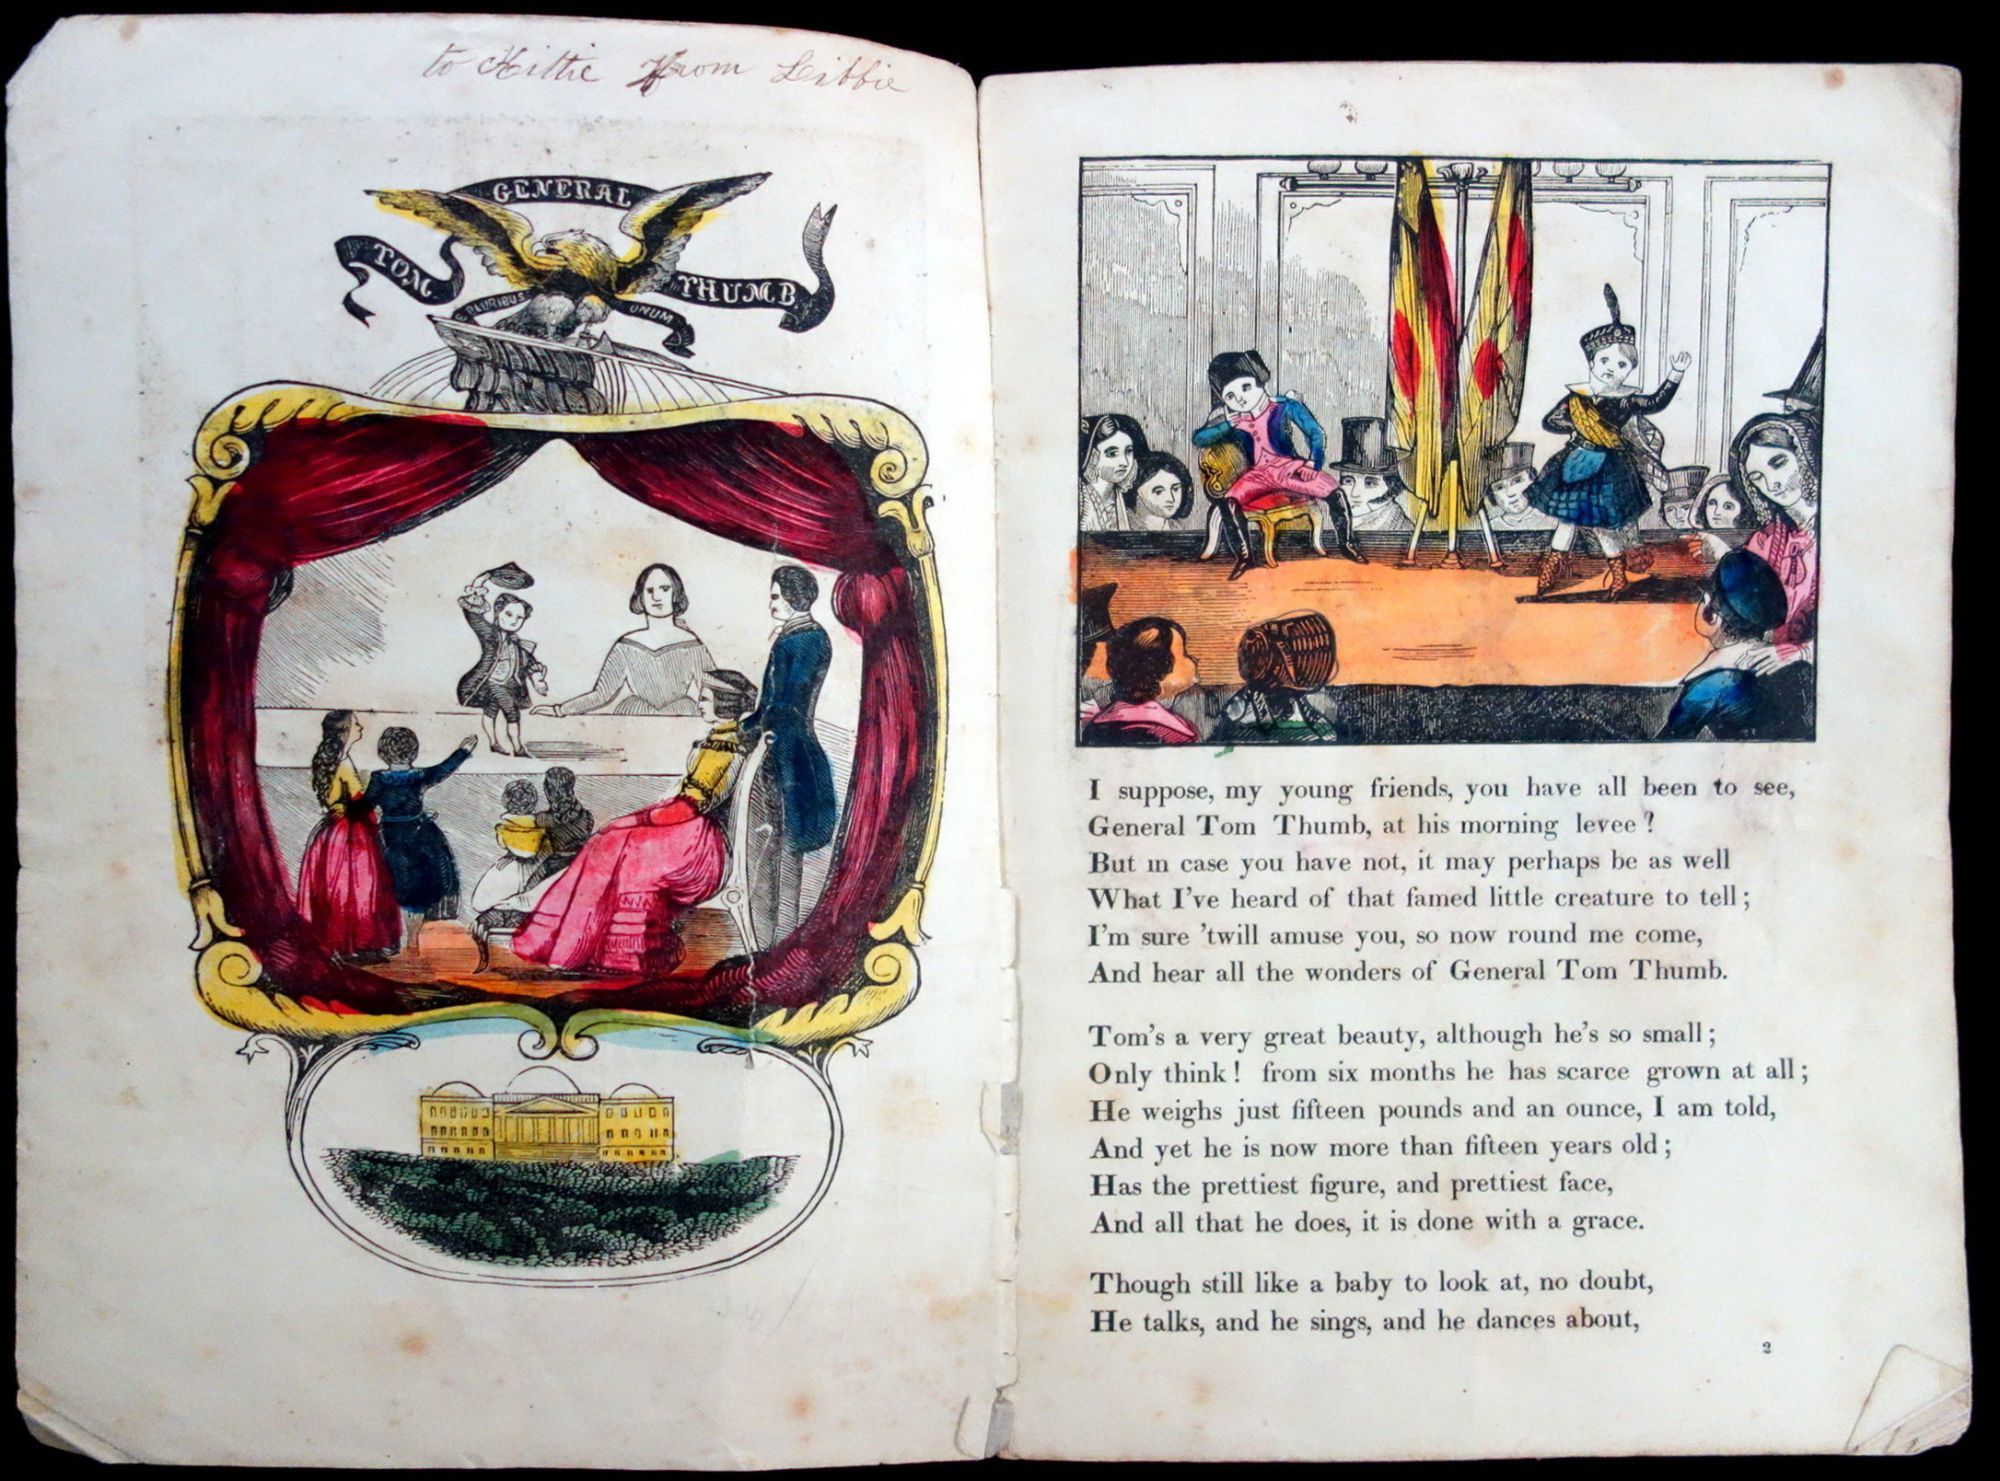 to Kittie from Libbie
GENERAL
TOM THUMB
E PLURIBUS UNUM
I suppose, my young friends, you have all been to see,
General Tom Thumb, at his morning levee?
But in case you have not, it may perhaps be as well
What I've heard of that famed little creature to tell;
I'm sure 'twill amuse you, so now round me come,
And hear all the wonders of General Tom Thumb.
Tom's a very great beauty, although he's so small;
Only think! from six months he has scarce grown at all;
He weighs just fifteen pounds and an ounce, I am told,
And yet he is now more than fifteen years old;
Has the prettiest figure, and prettiest face,
And all that he does, it is done with a grace.
Though still like a baby to look at, no doubt,
He talks, and he sings, and he dances about,
2